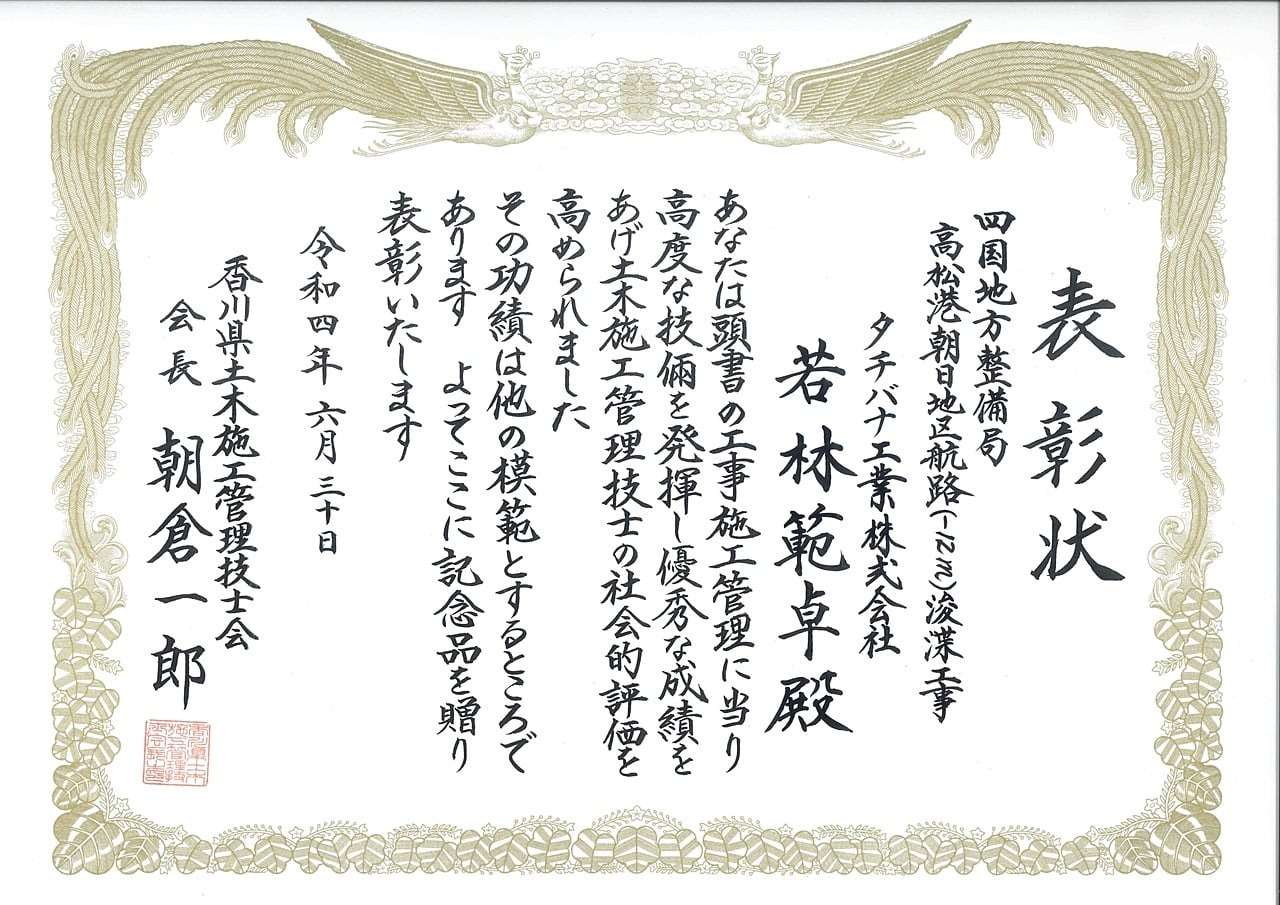 表彰状
四国地方整備局
高松港朝日地区航路(-12m)浚渫工事
タチバナ工業株式会社
若林範卓殿
あなたは頭書の工事施工管理に当り
高度な技倆を発揮し優秀な成績を
あげ土木施工管理技士の社会的評価を
高められました
その功績は他の模範とするところで
あります よってここに記念品を贈り
表彰いたします
令和四年六月三十日
香川県土木施工管理技士会
会長 朝倉一郎